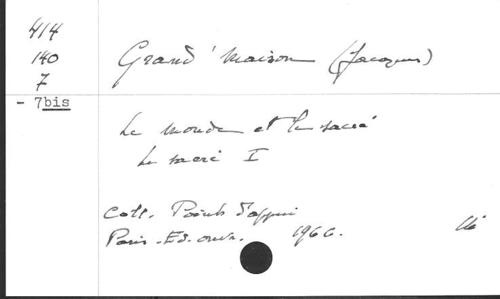 414
140
7
- 7bis
Grand'maison (Jacques)
Le monde et le sacré
Le sacré I
Coll. Points d'appui
Paris - Ed. ouvr. 1966.